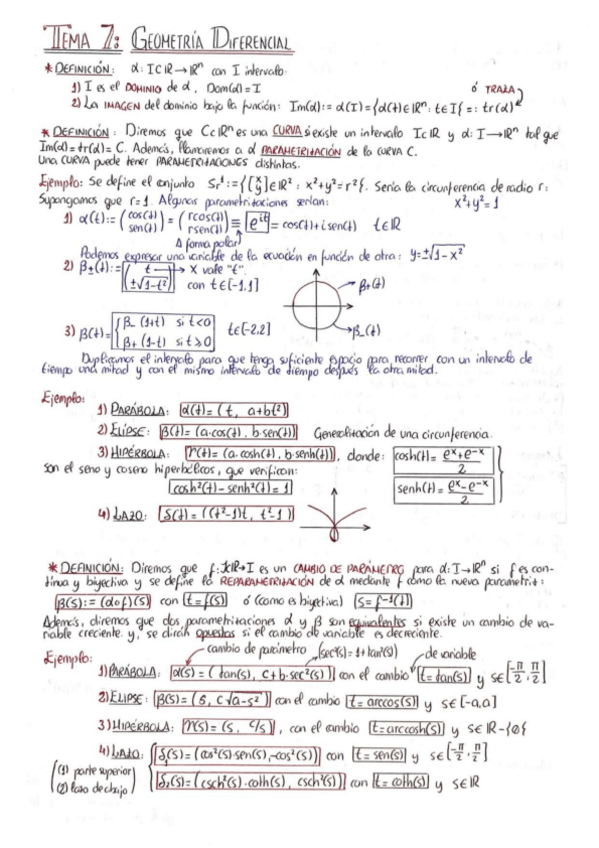 TEMA 7: GEOMETRÍA DIFERENCIAL
* DEFINICIÓN: α: I⊂ℝ→ℝⁿ con I intervalo.
1) I es el DOMINIO de α, Dom(α)=I
2) La IMAGEN del dominio bajo la función: Im(α):= α(I)={α(t)∈ℝⁿ: t∈I} =: tr(α) ó TRAZA
* DEFINICIÓN: Diremos que C⊂ℝⁿ es una CURVA si existe un intervalo I⊂ℝ y α: I→ℝⁿ tal que
Im(α)=tr(α)=C. Además, llamaremos a α PARAMETRIZACIÓN de la curva C.
Una CURVA puede tener PARAMETRIZACIONES distintas.
Ejemplo: Se define el conjunto Sᵣ¹:={(x y)∈ℝ²: x²+y²=r²}. Sería la circunferencia de radio r:
Supongamos que r=1. Algunas parametrizaciones serían: x²+y²=1
1) α(t):=(cos(t) sen(t))=(rcos(t) rsen(t))≡ e^{it} = cos(t)+i sen(t) t∈ℝ
Δ forma polar)
Podemos expresar una variable de la ecuación en función de otra: y=±√1-x²
2) β±(t):=(t ±√1-t²) → x vale "t". con t∈[-1,1]
β₊(t)
β₋(t)
3) β(t)={β₋(1+t) si t<0 β₊(1-t) si t≥0 t∈[-2,2]
Duplicamos el intervalo para que tenga suficiente espacio para recorrer con un intervalo de
tiempo una mitad y con el mismo intervalo de tiempo después la otra mitad.
Ejemplo:
1) PARÁBOLA: α(t)=(t, a+bt²)
2) ELIPSE: β(t)=(a·cos(t), b·sen(t)) Generalización de una circunferencia.
3) HIPÉRBOLA: γ(t)=(a·cosh(t), b·senh(t)), donde: cosh(t)= eˣ+e⁻ˣ/2
son el seno y coseno hiperbólicos, que verifican: senh(t)= eˣ-e⁻ˣ/2
cosh²(t)-senh²(t)=1
4) LAZO: δ(t)=((t²-1)t, t²-1)
* DEFINICIÓN: Diremos que f:J⊂ℝ→I es un CAMBIO DE PARÁMETRO para α: I→ℝⁿ si f es con-
tinua y biyectiva y se define la REPARAMETRIZACIÓN de α mediante f como la nueva parametriz:
β(s):=(α∘f)(s) con t=f(s) ó (como es biyectiva) s=f⁻¹(t)
Además, diremos que dos parametrizaciones α y β son equivalentes si existe un cambio de va-
riable creciente. y, se dirán opuestas si el cambio de variable es decreciente.
Ejemplo: cambio de parámetro (sec²(s)=1+tan²(s)) de variable
1) PARÁBOLA: α(s)=(tan(s), c+b·sec²(s)) con el cambio t=tan(s) y s∈[-π/2, π/2]
2) ELIPSE: β(s)=(s, c√a-s²) con el cambio t=arccos(s) y s∈[-a,a]
3) HIPÉRBOLA: γ(s)=(s, c/s), con el cambio t=arccosh(s) y s∈ℝ-{0}
4) LAZO: δ₁(s)=(cos²(s)·sen(s),-cos²(s)) con t=sen(s) y s∈[-π/2, π/2]
(1) parte superior
(2) lazo de abajo
δ₂(s)=(csch²(s)·coth(s), csch²(s)) con t=coth(s) y s∈ℝ